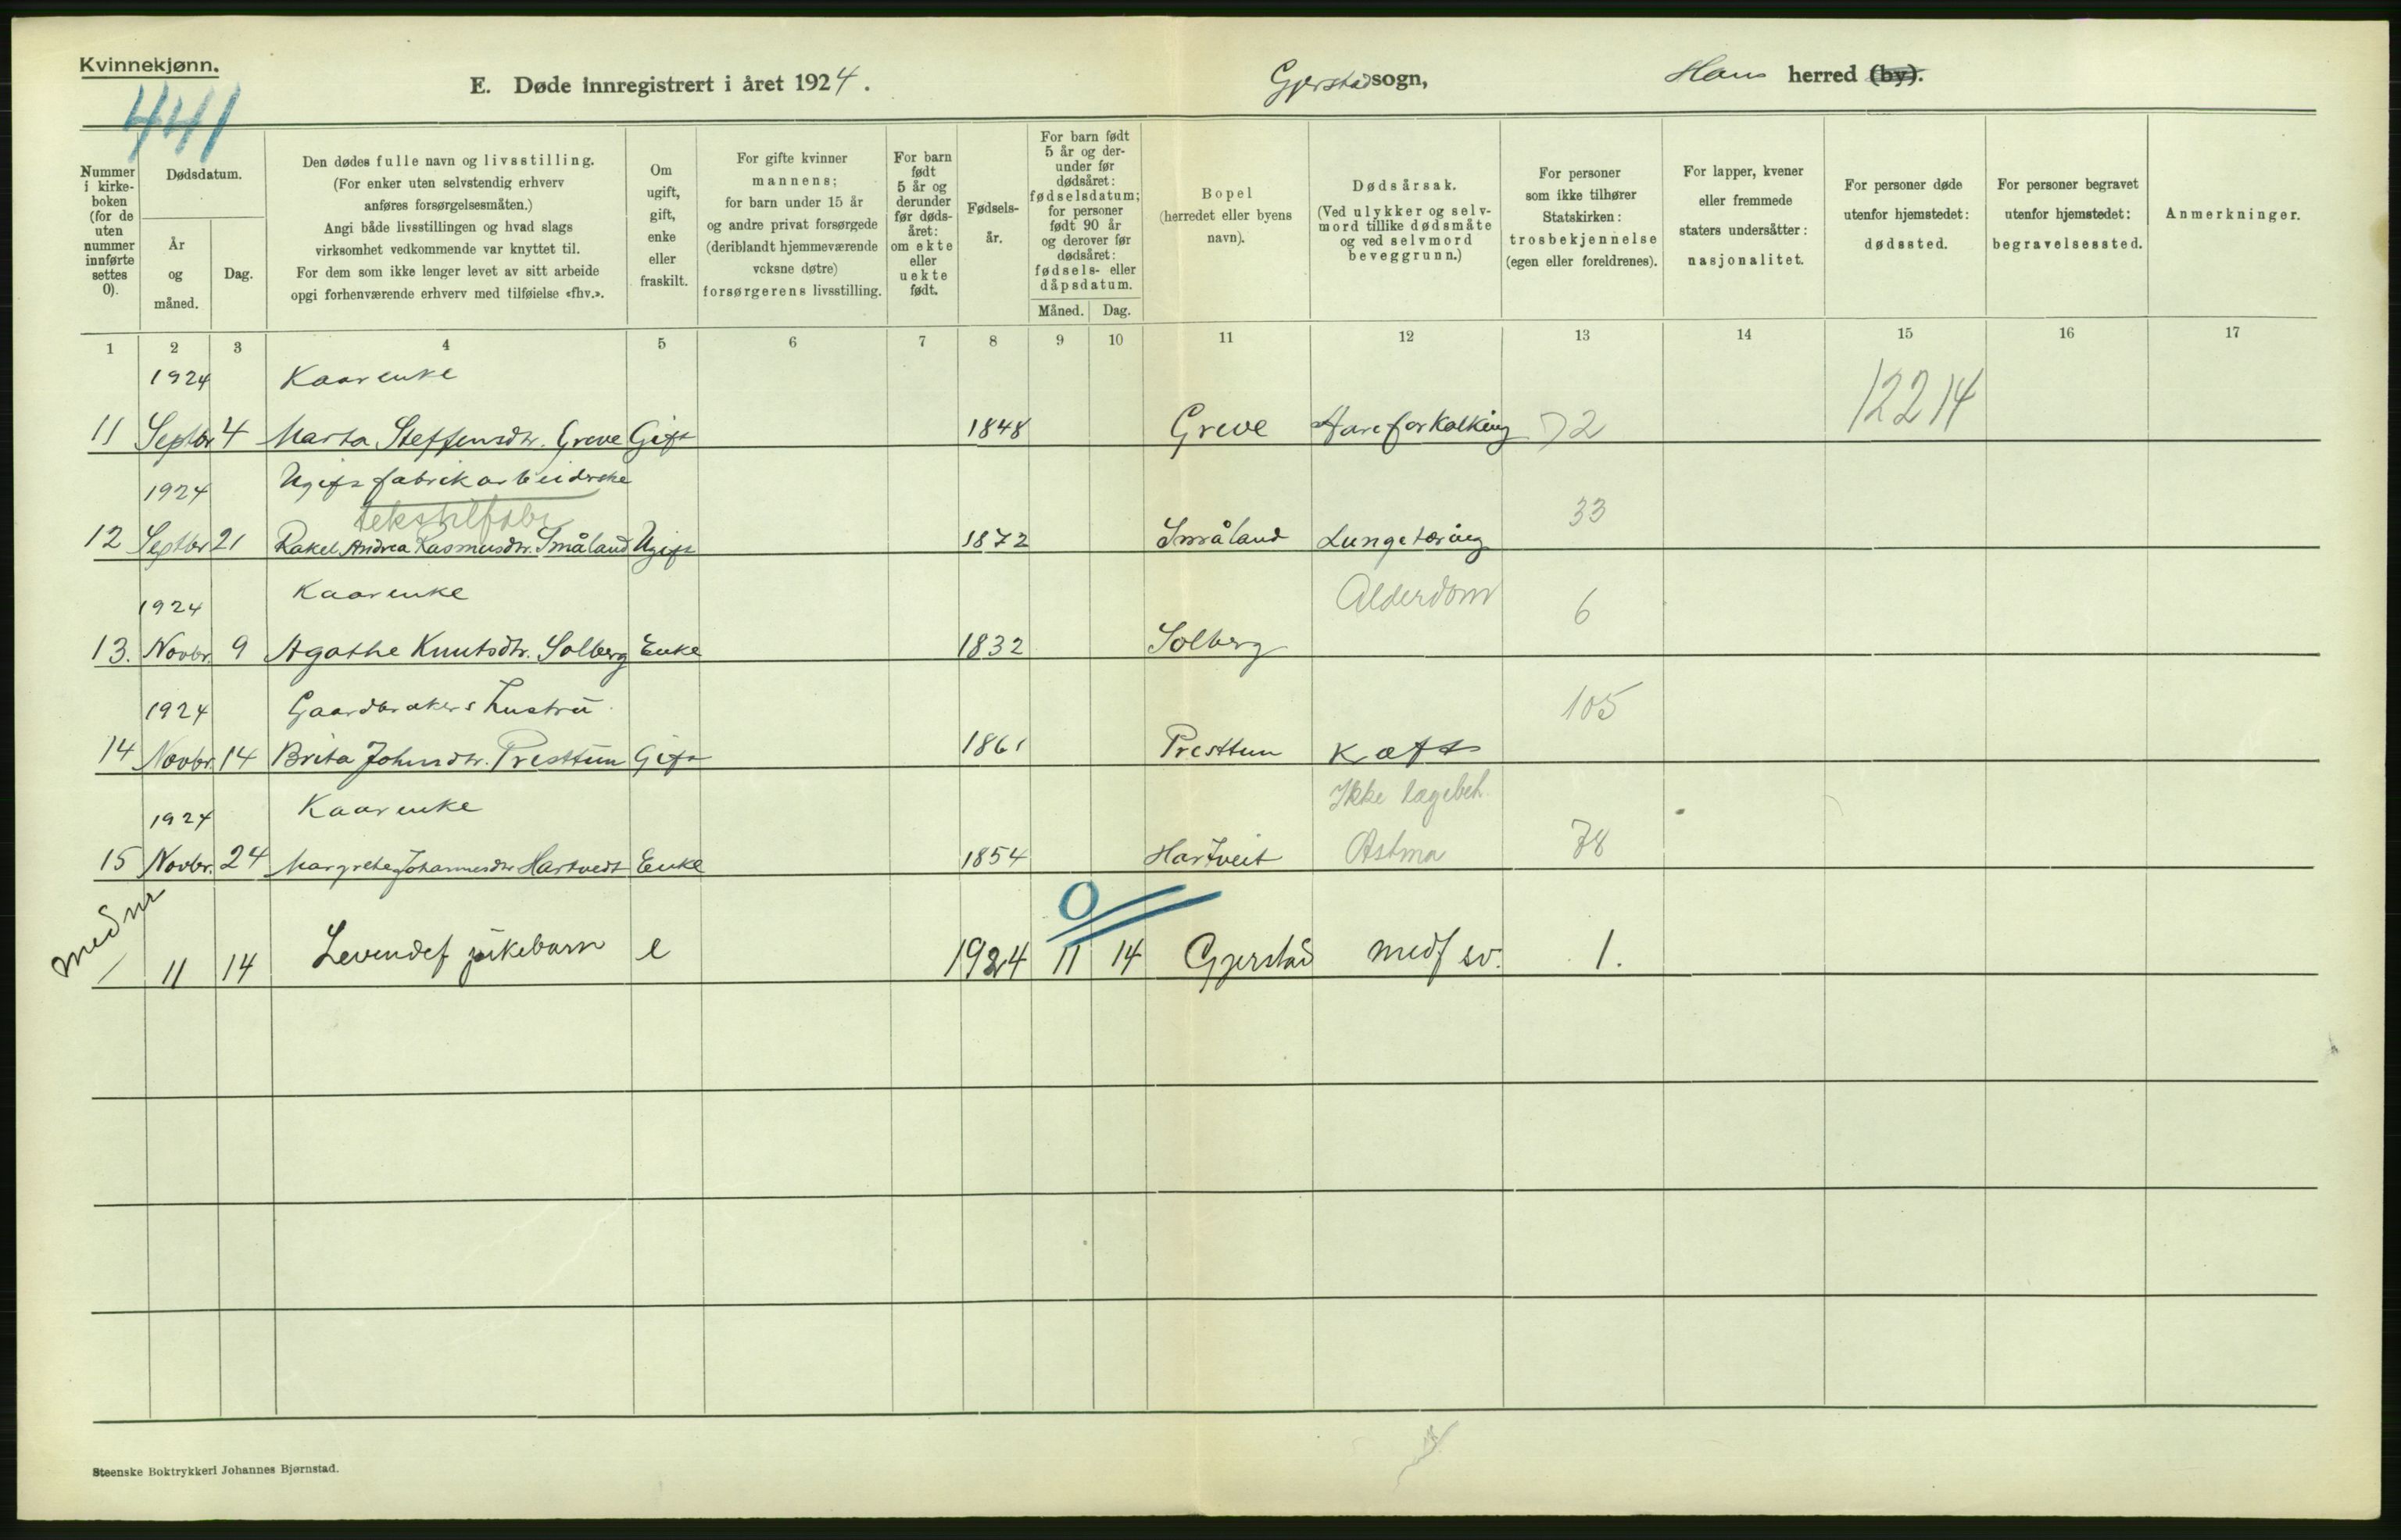 Kvinnekjønn.
441
E. Døde innregistrert i året 1924.
Gjerstad sogn,
Haus herred (by).
Nummer i kirke-boken (for de uten nummer innførte settes 0).
Dødsdatum.
År og måned.
Dag.
Den dødes fulle navn og livsstilling.
(For enker uten selvstendig erhverv
anføres forsørgelsesmåten.)
Angi både livsstillingen og hvad slags
virksomhet vedkommende var knyttet til.
For dem som ikke lenger levet av sitt arbeide
opgi forhenværende erhverv med tilføielse «fhv.».
Om ugift, gift, enke eller fraskilt.
For gifte kvinner
mannens;
for barn under 15 år
og andre privat forsørgede
(deriblandt hjemmeværende
voksne døtre)
forsørgerens livsstilling.
For barn født 5 år og derunder før døds-året: om ekte eller uekte født.
Fødsels-år.
For barn født
5 år og der-
under før
dødsåret:
fødselsdatum;
for personer
født 90 år
og derover før
dødsåret:
fødsels- eller
dåpsdatum.
Måned. Dag.
Bopel
(herredet eller byens
navn).
Dødsårsak.
(Ved ulykker og selv-
mord tillike dødsmåte
og ved selvmord
beveggrunn.)
For personer
som ikke tilhører
Statskirken:
trosbekjennelse
(egen eller foreldrenes).
For lapper, kvener
eller fremmede
staters undersåtter:
nasjonalitet.
For personer døde
utenfor hjemstedet:
dødssted.
For personer begravet
utenfor hjemstedet:
begravelsessted.
Anmerkninger.
1 2 3 4 5 6 7 8 9 10 11 12 13 14 15 16 17
1924 Kaarenke 12214
11 Septbr 4 Marta Steffensdtr. Greve Gift 1848 Greve Aareforkalking 72
1924 Ugift fabrikarbeiderske
tekstilfabr 33
12 Septbr 21 Rakel Andrea Rasmusdtr. Småland Ugift 1872 Småland Lungetæring
1924 Kaarenke Alderdom 6
13. Novbr. 9 Agathe Knutsdtr. Solberg Enke 1832 Solberg
1924 Gaardbrukers hustru 105
14 Novbr. 14 Brita Johnsdtr. Presttun Gift 1861 Presttun Kræft
1924 Kaarenke Ikke lægebeh.
15 Novbr. 24 Margrethe Johannesdtr Hartvedt Enke 1854 Hartveit Astma 78
med nr
0
/ 11 14 Levendef pikebarn e 1924 11 14 Gjerstad medf sv. 1.
Steenske Boktrykkeri Johannes Bjørnstad.